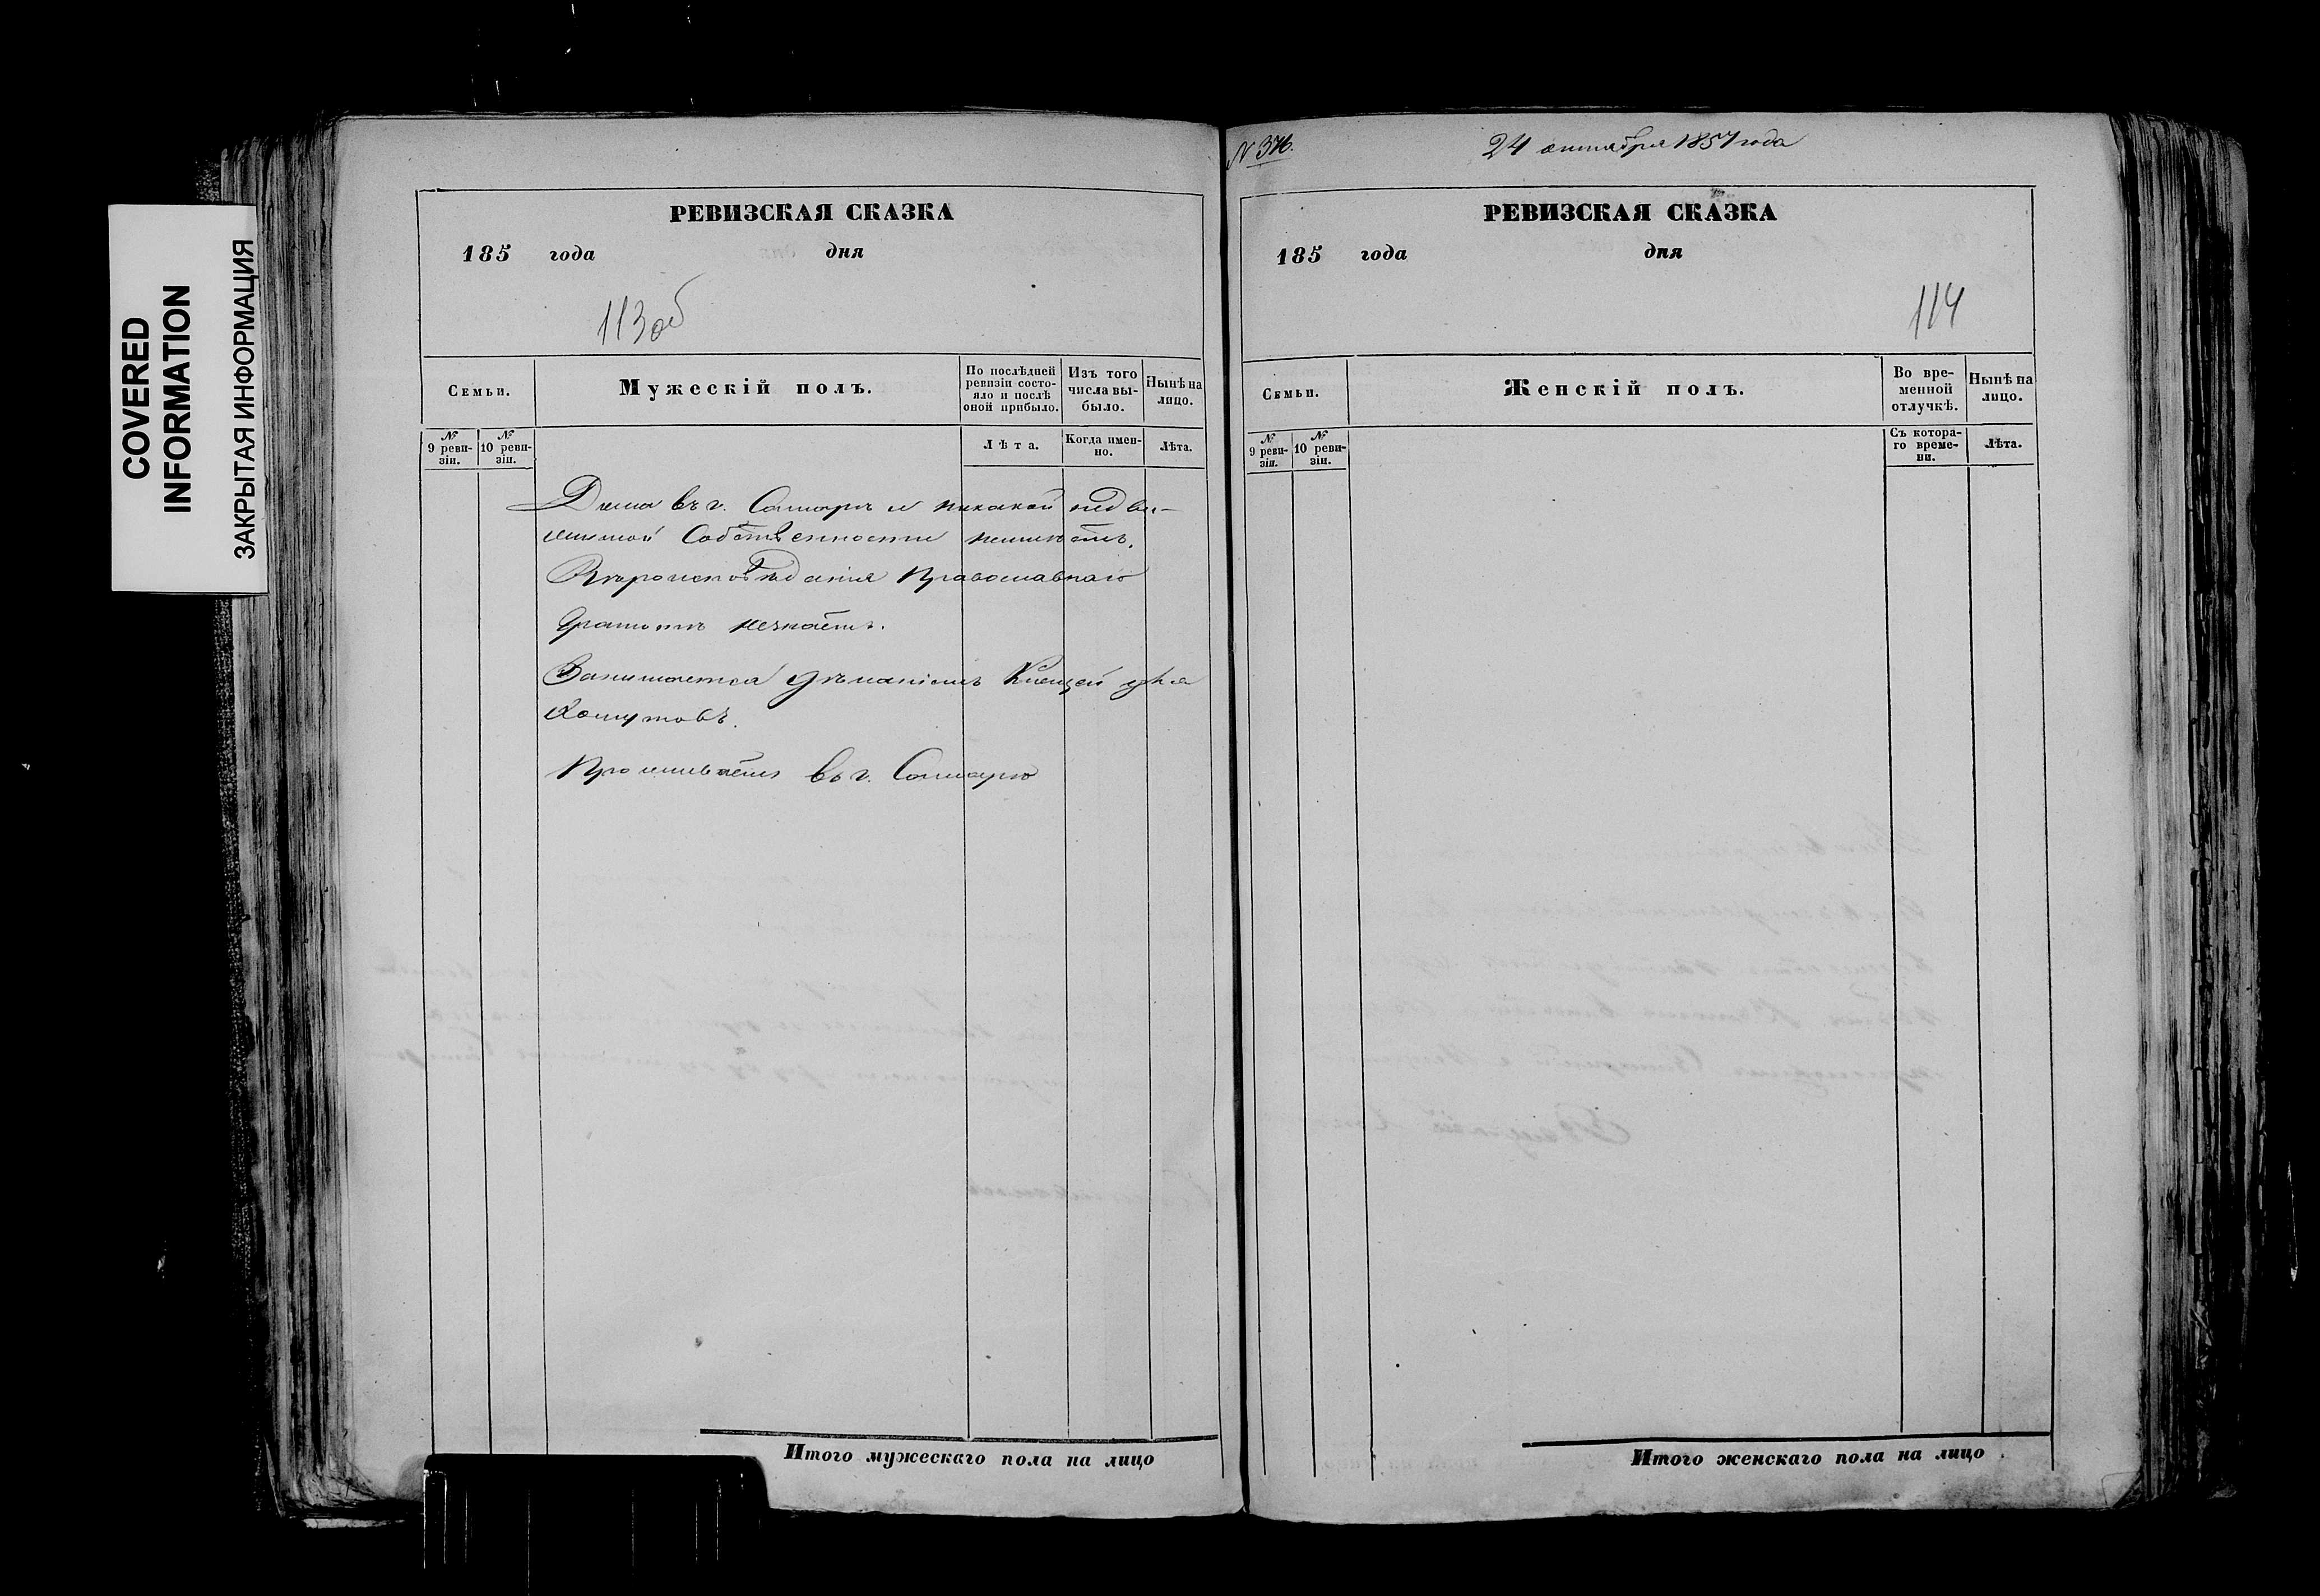 COVERED
INFORMATION
ЗАКРЫТАЯ ИНФОРМАЦИЯ
РЕВИЗСКАЯ СКАЗКА
185 года дня
113об
Семьи.
Мужескій полъ.
По послѣдней ревизіи состо-
яло и послѣ
оной прибыло.
Изъ того
числа вы-
было.
Нынѣ на
лицо.
№
9 реви-
зіи.
№
10 реви-
зіи.
Лѣта.
Когда имен-
но.
Лѣта.
Дома въ г. Самарѣ и никакой недви-
жимой Собственности неимѣетъ.
Вѣроисповѣданія Православнаго
Грамотѣ незнаетъ.
Занимается дѣланіемъ Клещей для
Хомутовъ.
Проживаетъ въ г. Самарѣ
Итого мужескаго пола на лицо
N 376.
24 октября 1857 года
РЕВИЗСКАЯ СКАЗКА
185 года дня
114
Семьи.
Женскій полъ.
Во вре-
менной
отлучкѣ.
Нынѣ на
лицо.
№
9 реви-
зіи.
№
10 реви-
зіи.
Съ котора-
го време-
ни.
Лѣта.
Итого женскаго пола на лицо